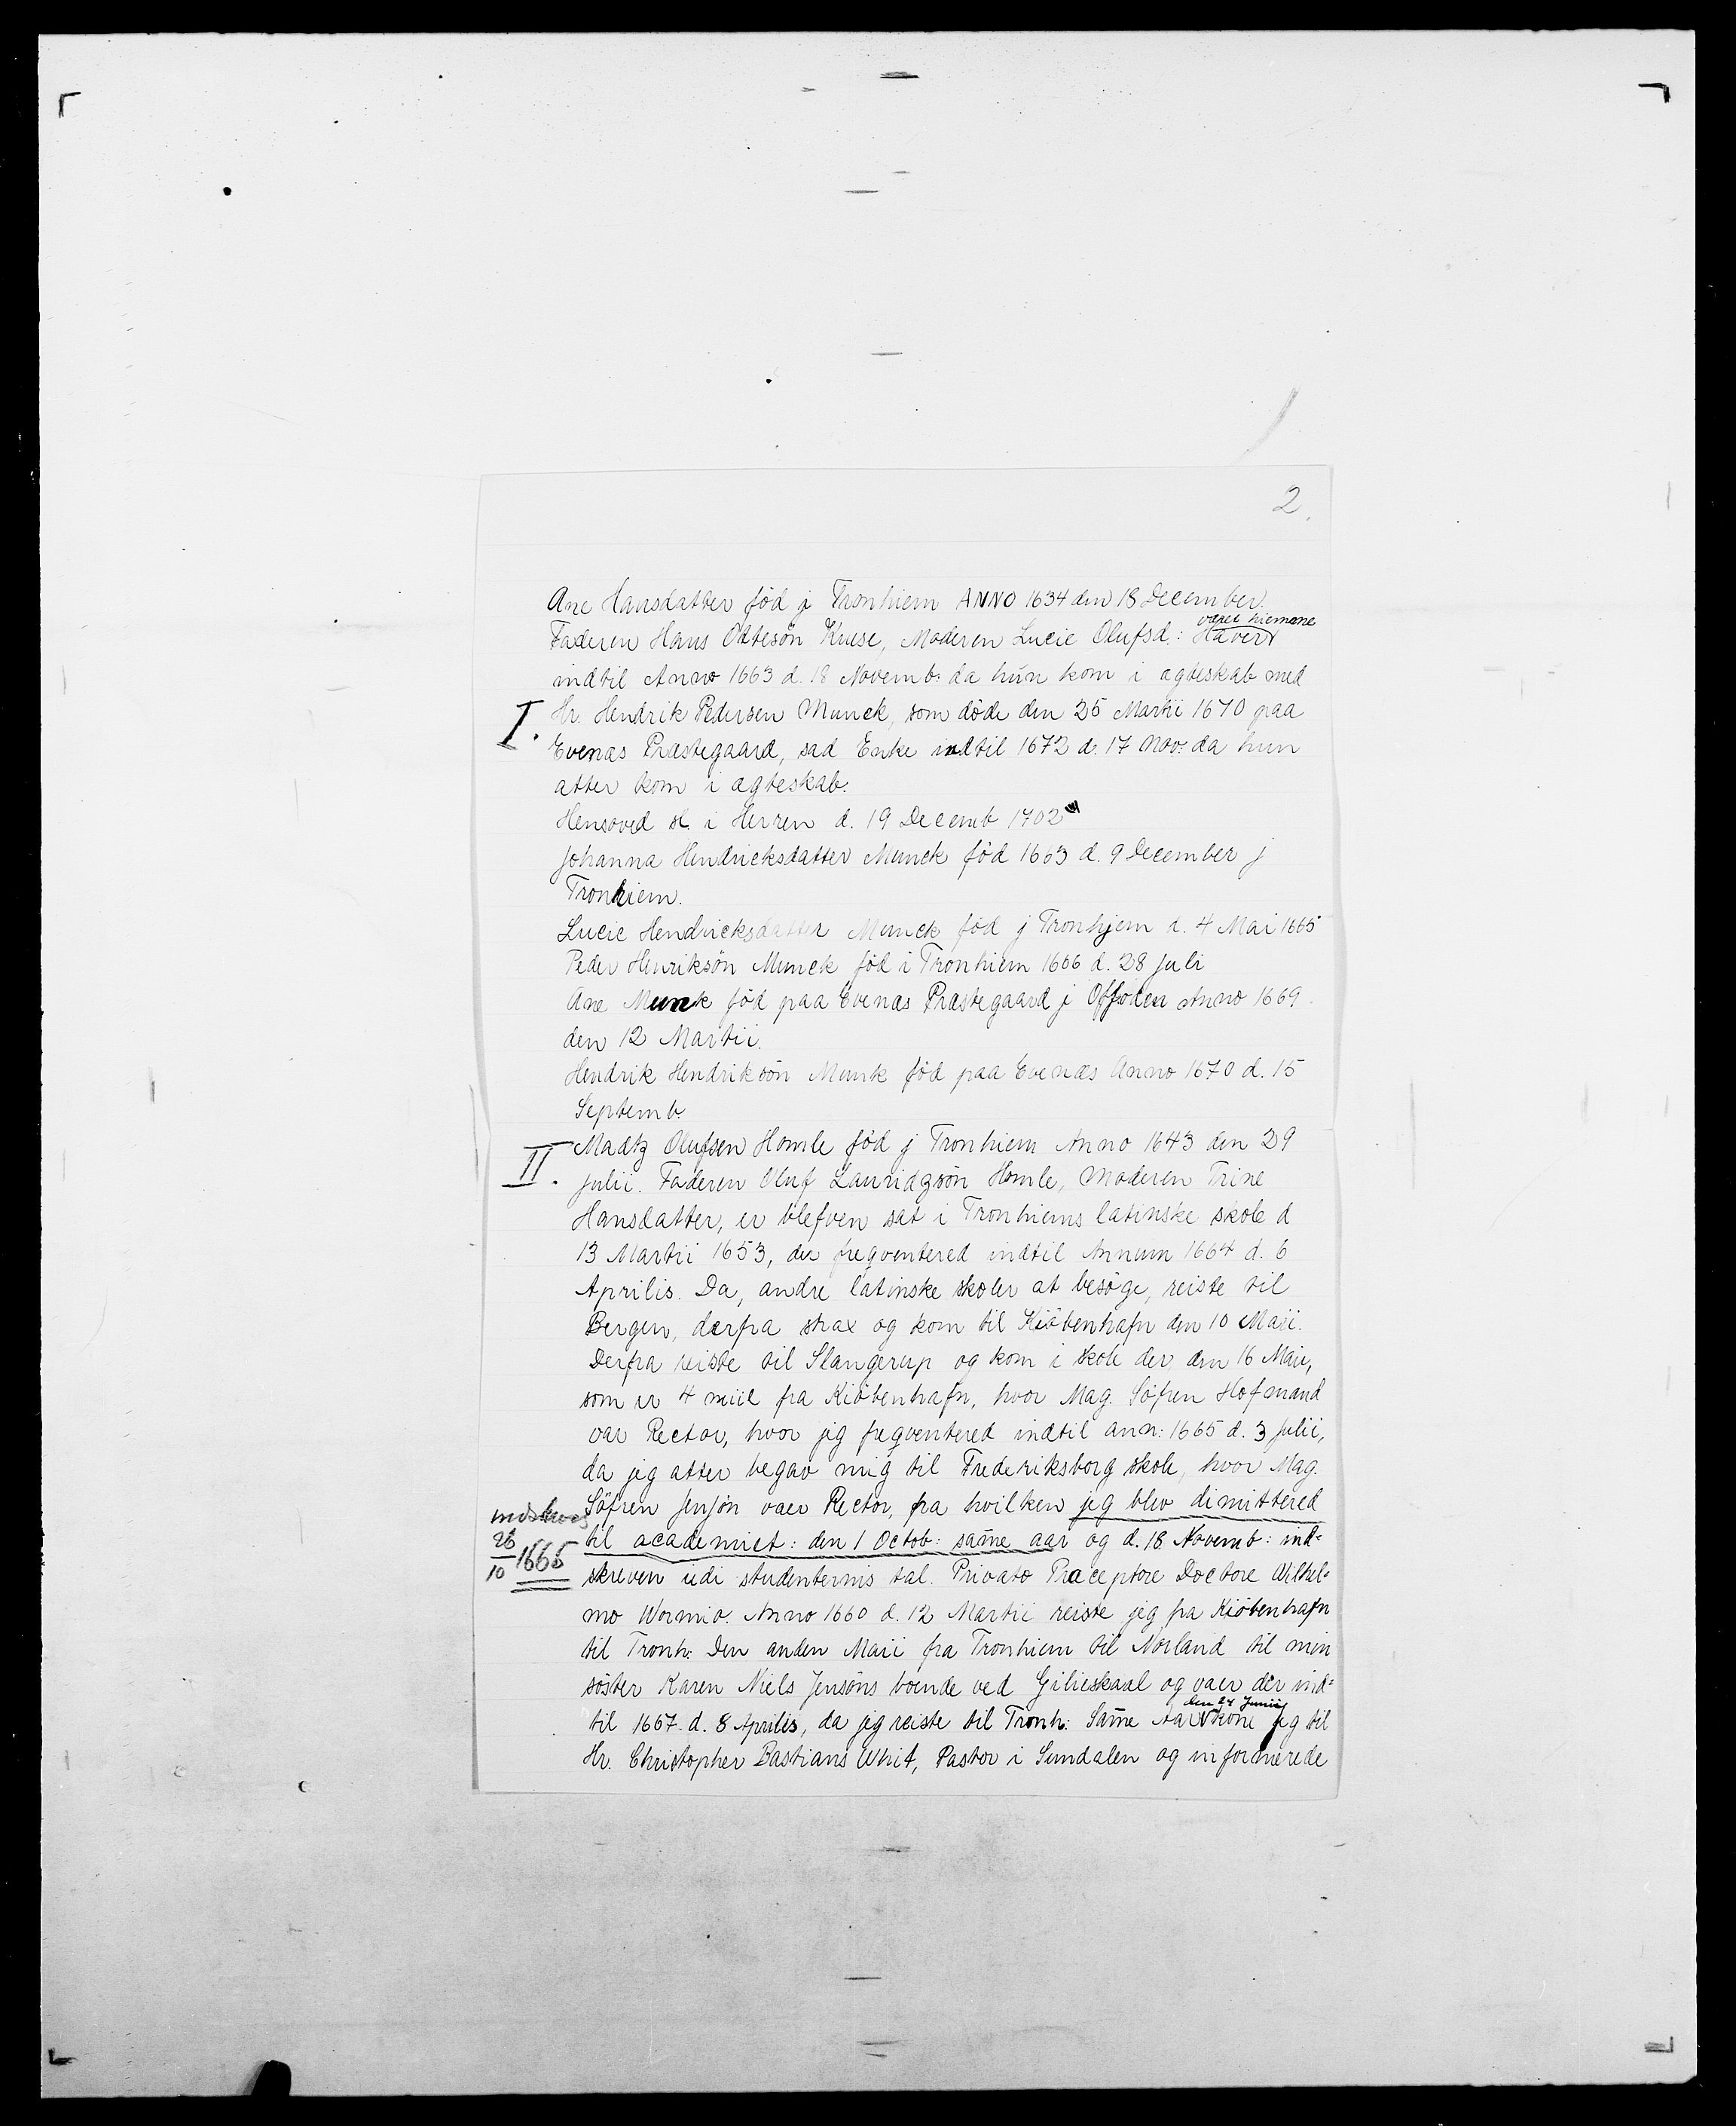 2.
Ane Hansdatter fød j Tronhiem ANNO 1634 den 18 December.
Faderen Hans Ottesøn Kruse, Moderen Lucie Olufsd: Haver
været hiemme
indtil Anno 1663 d. 18 Novemb: da hun kom i agteskab med
I. Hr. Hendrik Pedersen Munck, som døde den 25 Martii 1670 paa
Evenæs Præstegaard, sad Enke indtil 1672 d. 17 Nov: da hun
atter kom i ægteskab.
Hensoved sl. i Herren d. 19 Decemb 1702
Johanna Hendricksdatter Munck fød 1663 d. 9 December j
Tronhiem.
Lucie Hendricksdatter Munck fød j Tronhjem d. 4 Mai 1665
Peder Henriksøn Munck fød i Tronhiem 1666 d. 28 Juli
Ane Munk fød paa Evenæs Præstegaard j Offoden Anno 1669
den 12 Martii.
Hendrik Hendriksøn Munk fød paa Evenæs Anno 1670 d. 15
Septemb.
II. Madtz Olufsen Homle fød j Tronhiem Anno 1643 den 29
Julii. Faderen Oluf Lauridzsøn Homle, Moderen Trine
Hansdatter, er blefven sat i Tronhiems latinske skole d
13 Martii 1653, der freqventered indtil Annum 1664 d. 6
Aprilis. Da, andre latinske skoler at besøge, reiste til
Bergen, derfra strax og kom til Kiøbenhafn den 10 Maii.
Derfra reiste til Slangerup og kom i skole der den 16 Maii,
som er 4 miil fra Kiøbenhafn, hvor Mag. Søfren Hofmand
var Rector, hvor jeg freqventered indtil ann: 1665 d. 3 Julii,
da jeg atter begav mig til Frederiksborg skole, hvor Mag.
Søfren Jensøn vaer Rector, fra hvilken jeg blev dimittered
indskrev
26/10 1665
til academiet: den 1 Octob: sam̄e aar og d. 18 Novemb: ind-
skreven udi studenternis tal. Privato Præceptore Doctore Wilhel-
mo Wormio. Anno 1660 d. 12 Martii reiste jeg fra Kiøbenhafn
til Tronh: Den anden Maii fra Tronhiem til Norland til min
søster Karen Niels Jensøns boende ved Gilieskaal og vaer der ind-
den 24 Junii
til 1667. d. 8 Aprilis, da jeg reiste til Tronh: Sam̄e Aar kom jeg til
Hr. Christopher Bastians Whit, Pastor i Sundalen og informerede